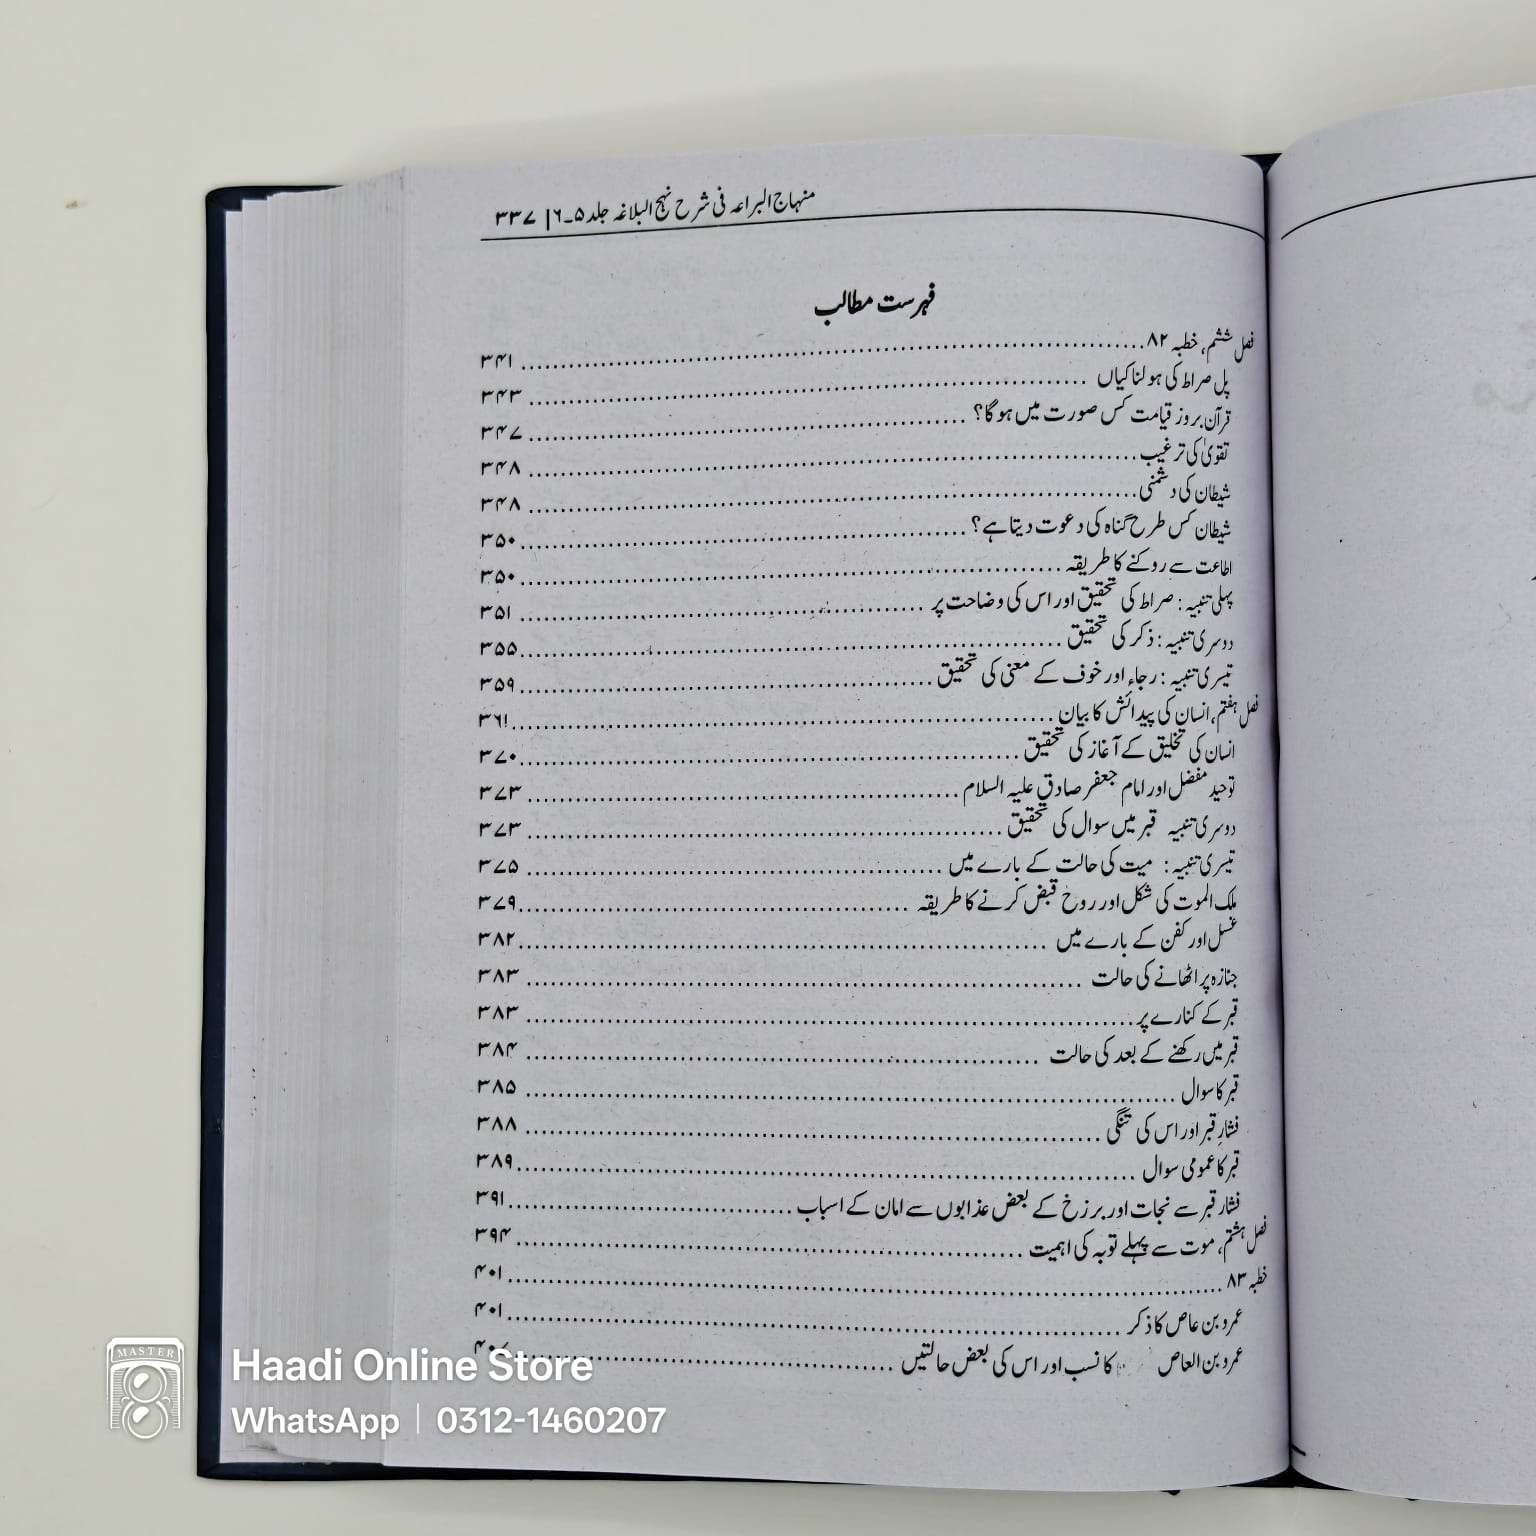 منہاج البراعہ فی شرح نہج البلاغہ جلد ۵۔۶ | ۳۳۷
فہرست مطالب
فصل ششم، خطبہ ۸۲ ........ ۳۴۱
پل صراط کی ہولناکیاں ........ ۳۴۳
قرآن بروز قیامت کس صورت میں ہوگا؟ ........ ۳۴۷
تقویٰ کی ترغیب ........ ۳۴۸
شیطان کی دشمنی ........ ۳۴۸
شیطان کس طرح گناہ کی دعوت دیتا ہے؟ ........ ۳۵۰
اطاعت سے روکنے کا طریقہ ........ ۳۵۰
پہلی تنبیہ: صراط کی تحقیق اور اس کی وضاحت پر ........ ۳۵۱
دوسری تنبیہ: ذکر کی تحقیق ........ ۳۵۵
تیسری تنبیہ: رجاء اور خوف کے معنی کی تحقیق ........ ۳۵۹
فصل ہفتم، انسان کی پیدائش کا بیان ........ ۳۶۱
انسان کی تخلیق کے آغاز کی تحقیق ........ ۳۷۰
توحید مفضل اور امام جعفر صادق علیہ السلام ........ ۳۷۳
دوسری تنبیہ قبر میں سوال کی تحقیق ........ ۳۷۳
تیسری تنبیہ: میت کی حالت کے بارے میں ........ ۳۷۵
ملک الموت کی شکل اور روح قبض کرنے کا طریقہ ........ ۳۷۹
غسل اور کفن کے بارے میں ........ ۳۸۲
جنازہ پر اٹھانے کی حالت ........ ۳۸۳
قبر کے کنارے پر ........ ۳۸۳
قبر میں رکھنے کے بعد کی حالت ........ ۳۸۴
قبر کا سوال ........ ۳۸۵
فشارِ قبر اور اس کی تنگی ........ ۳۸۸
قبر کا عمومی سوال ........ ۳۸۹
فشار قبر سے نجات اور برزخ کے بعض عذابوں سے امان کے اسباب ........ ۳۹۱
فصل ہشتم، موت سے پہلے توبہ کی اہمیت ........ ۳۹۴
خطبہ ۸۳ ........ ۴۰۱
عمرو بن عاص کا ذکر ........ ۴۰۱
عمرو بن العاص کا نسب اور اس کی بعض حالتیں ........
MASTER
Haadi Online Store
WhatsApp | 0312-1460207